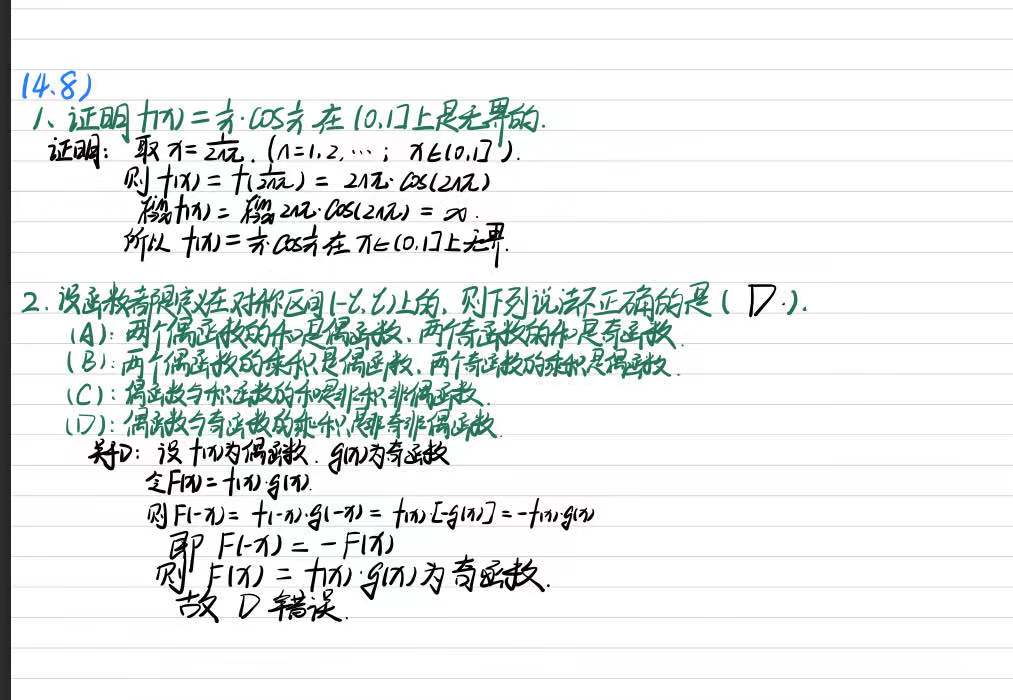 (4.8)
1、证明 f(x) = 1/x·cos1/x 在 (0,1] 上是无界的.
证明: 取 x = 1/2nπ. (n=1,2,…; x∈(0,1]).
则 f(x) = f(1/2nπ) = 2nπ·cos(2nπ)
lim f(x) = lim 2nπ·cos(2nπ) = ∞.
所以 f(x) = 1/x·cos1/x 在 x∈(0,1]上无界.
2. 设函数都是定义在对称区间(-l,l)上的, 则下列说法不正确的是 ( D. ).
(A): 两个偶函数的和是偶函数、两个奇函数的和是奇函数.
(B): 两个偶函数的乘积是偶函数、两个奇函数的乘积是偶函数.
(C): 偶函数与积函数的和是非积非偶函数.
(D): 偶函数与奇函数的乘积是非奇非偶函数.
关于D: 设 f(x)为偶函数. g(x)为奇函数
令F(x) = f(x)·g(x).
则 F(-x) = f(-x)·g(-x) = f(x)·[-g(x)] = -f(x)·g(x)
即 F(-x) = -F(x)
则 F(x) = f(x)·g(x) 为奇函数.
故 D 错误.